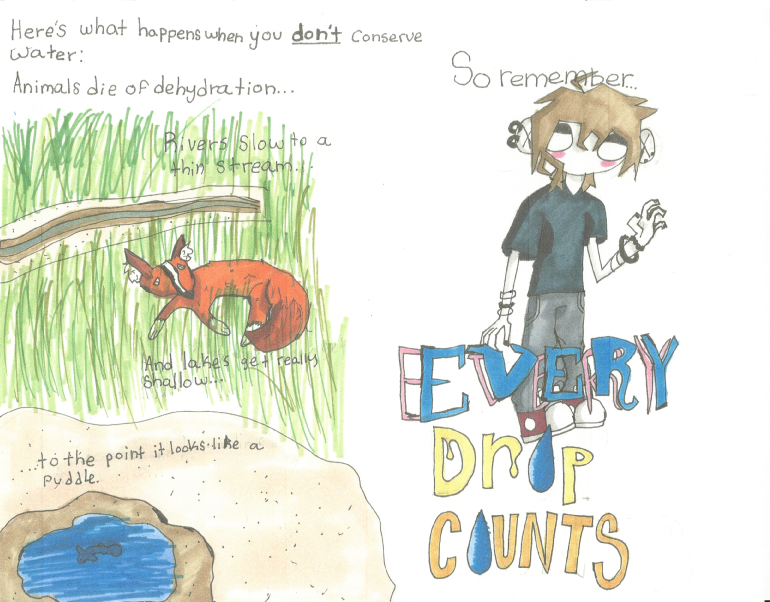 Here's what happens when you don't conserve
water:
Animals die of dehydration...
Rivers slow to a
thin stream...
And lakes get really
shallow...
...to the point it looks like a
pyddle.
So remember...
EVERY
Drip
COUNTS